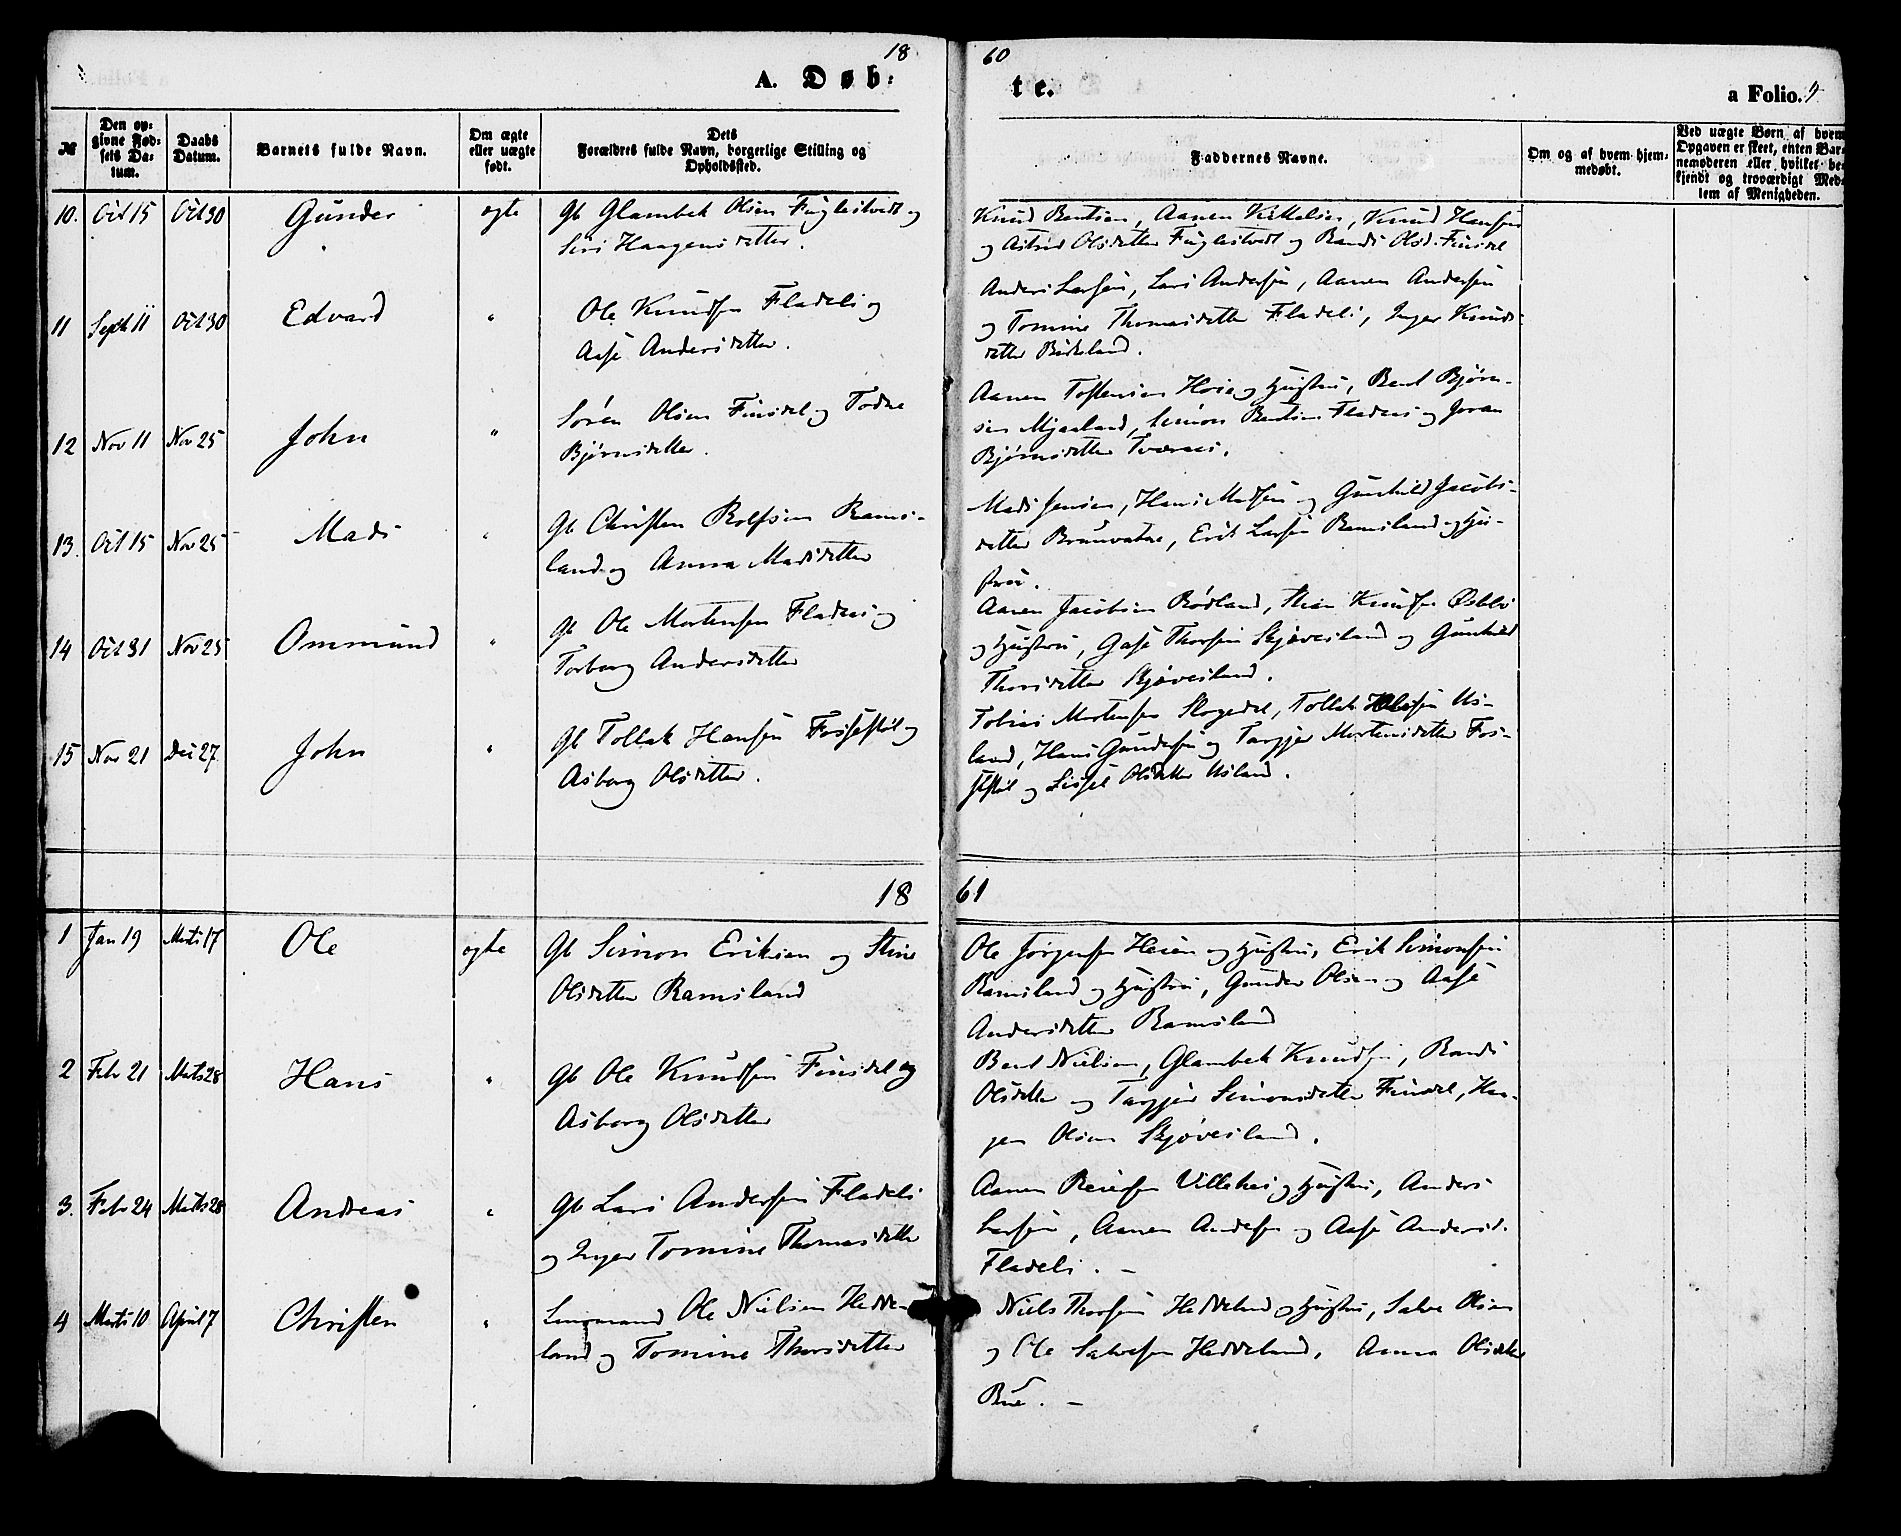 18 60
A. Døb: te. a Folio. 9
№
Den op-
givne Fød-
sels Da-
tum.
Daabs
Datum.
Barnets fulde Navn.
Om ægte
eller uægte
født.
Dets
Forældres fulde Navn, borgerlige Stilling og
Opholdssted.
Faddernes Navne.
Om og af hvem hjem-
medøbt.
Ved uægte Børn af hvem
Opgaven er skeet, enten Bar-
nemoderen eller hvilket be-
kjendt og troværdigt Med-
lem af Menigheden.
10. Oct 15 Oct 30 Gunder ægte Gb Glambek Olsen Fuglestvedt og
Siri Haagensdetter.
Knud Bentsen, Aanen Kittelsen, Knud Hansen
og Astrid Olsdetter Fuglestvedt og Randi Olsd. Finsdal
11 Sept 11 Oct 30 Edvard " Ole Knudsen Fladeli og
Aase Andersdetter.
Anders Larsen, Lars Andersen, Aanen Andersen
og Tomine Thomasdetter Fladeli, Inger Knuds-
detter Birkeland.
12 Nov 11 Nov 25 John " Søren Olsen Finsdal og Todne
Bjørnsdetter.
Aanen Tostensen Hoie og Hustru, Bent Bjørn-
sen Mjaaland, Simon Bentsen Fladeli og Joran
Bjørnsdetter Tveraas.
13. Oct 15 Nov 25 Mads " Gb Christen Rolfsen Rams-
land og Anna Madsdetter
Mads Jensen, Hans Madsen og Gunhild Jacobs-
detter Brunvatne, Erik Larsen Ramsland og Hu-
stru.
14 Oct 31 Nov 25 Ommund " Gb Ole Mortensen Fladeli og
Torborg Andersdetter
Aanen Jacobsen Rødland, Stian Knudsen
og Hustru, Thorsen Skjøvesland og Gunhild
Thorsdetter Skjøvesland.
15 Nov 21 Dec 27 John " Gb Tollak Hansen Fossestøl og
Asborg Olsdetter.
Tobias Mortensen Skogedal, Tollak Us-
land, Hans Gundersen og Targjer Mortensdetter Fos-
sestøl og Sissel Olsdetter Usland.
18 61
1 Jan 19 Marts 17 Ole ægte Gb Simon Eriksen og Stine
Olsdetter Ramsland
Ole Jørgensen Heien og Hustru, Erik Simonsen
Ramsland og Hustru, Gunder Olsen og Aase
Andersdetter Ramsland
2 Febr 21 Marts 28 Hans " Gb Ole Knudsen Finsdal og
Asborg Olsdetter
Bent Nielsen, Glambek Knudsen, Randi
Olsdetter og Targjer Simonsdetter Finsdal, Haa-
gen Olsen Skjøvesland.
3. Febr 24 Marts 28 Andreas " Gb Lars Andersen Fladeli
og Inger Tomine Thomasdetter
Aanen Reiersen Villehei og Hustru, Anders
Larsen, Aanen Andersen og Aase Andersd.
Fladeli. —
4 Marts 10 April 7 Christen " Ole Nielsen Hedde-
land og Tomine Thorsdetter
Niels Thorsen Heddeland og Hustru, Salve Olsen
og Ole Salvesen Heddeland, Anna Olsdetter
Bue. —